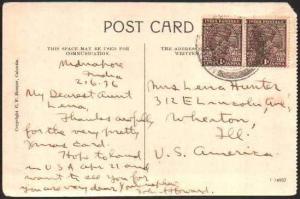 POST CARD
THIS SPACE MAY BE USED FOR
COMMUNICATION.
THE ADDRESS
WRITTEN
INDIA POSTAGE
INDIA POSTAGE
Midnapore
India
2/6/36
My Dearest Aunt
Lena,
Thanks awfully
for the very pretty
Xmas Card.
Hope to land
in U S A Apr 21 and
want to see you for
you are very dear. Your nephew
Howard.
Mrs Lena Hunter
312 E Lincoln Ave
Wheaton,
Ill.
U. S. America.